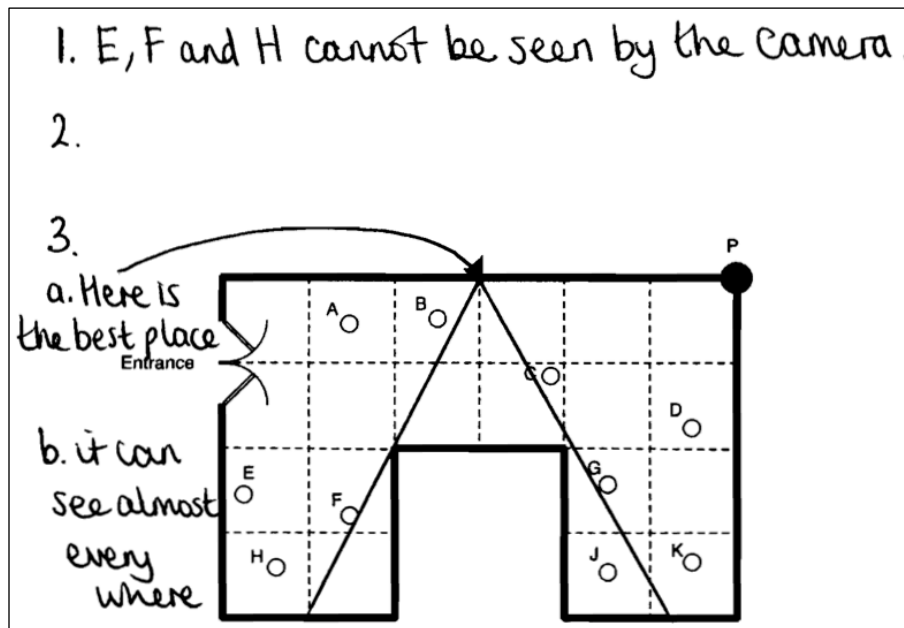 1. E, F and H cannot be seen by the camera.
2.
3.
a. Here is
the best place
b. it can
see almost
every
where
P
A
B
Entrance
C
D
E
F
G
H
J
K